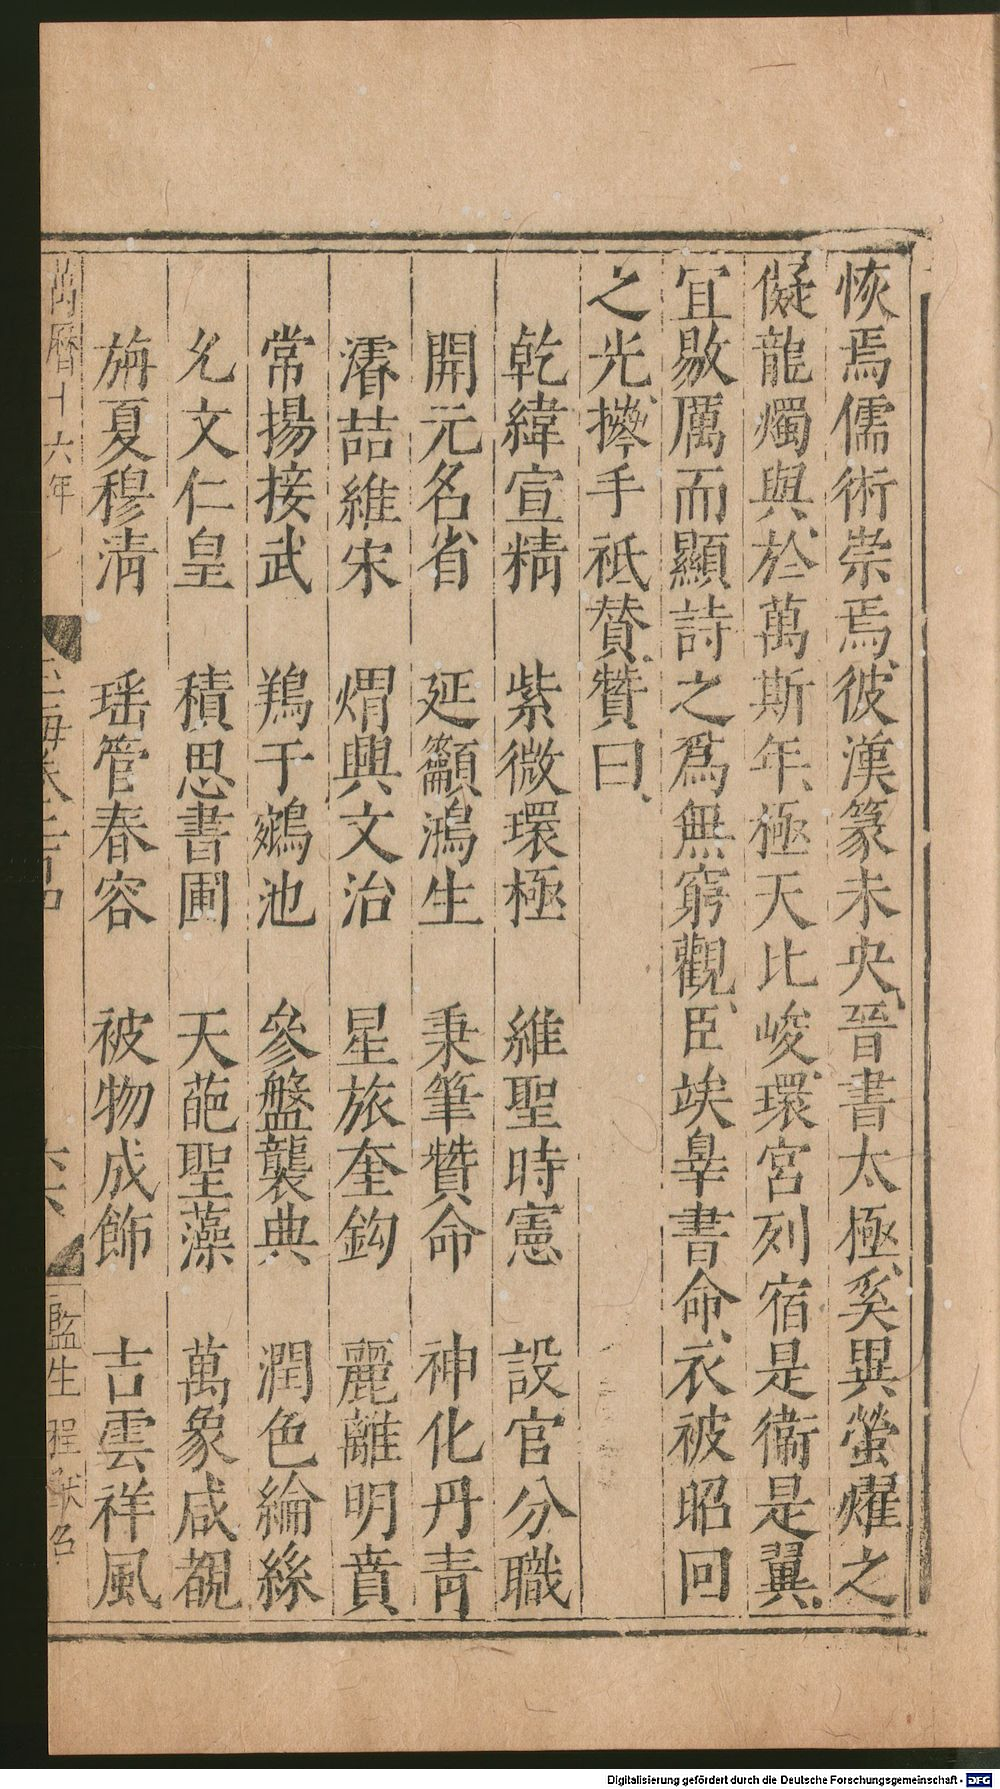 恢焉儒術崇焉彼漢篆未央晉書太極奚異螢燿之
儗龍燭與於萬斯年極天比峻環宮列宿是衞是翼
宜敭厲而顯詩之爲無窮觀臣竢辠書命衣被昭回
之光攀手祗賛贊曰
乾緯宣精　紫微環極　維聖時憲　設官分職
開元名省　延顲鴻生　秉筆贊命　神化丹青
濬喆維宋　煟興文治　星旅奎鈎　麗離明賁
常揚接武　鵷于鵷池　參盤襲典　潤色綸絲
允文仁皇　積思書圃　天葩聖藻　萬象咸覩
旃夏穆淸　瑶管春容　被物成飾　吉雲祥風
萬曆十六年
玉海卷二百四
六
監生
Digitalisierung gefördert durch die Deutsche Forschungsgemeinschaft - DFG